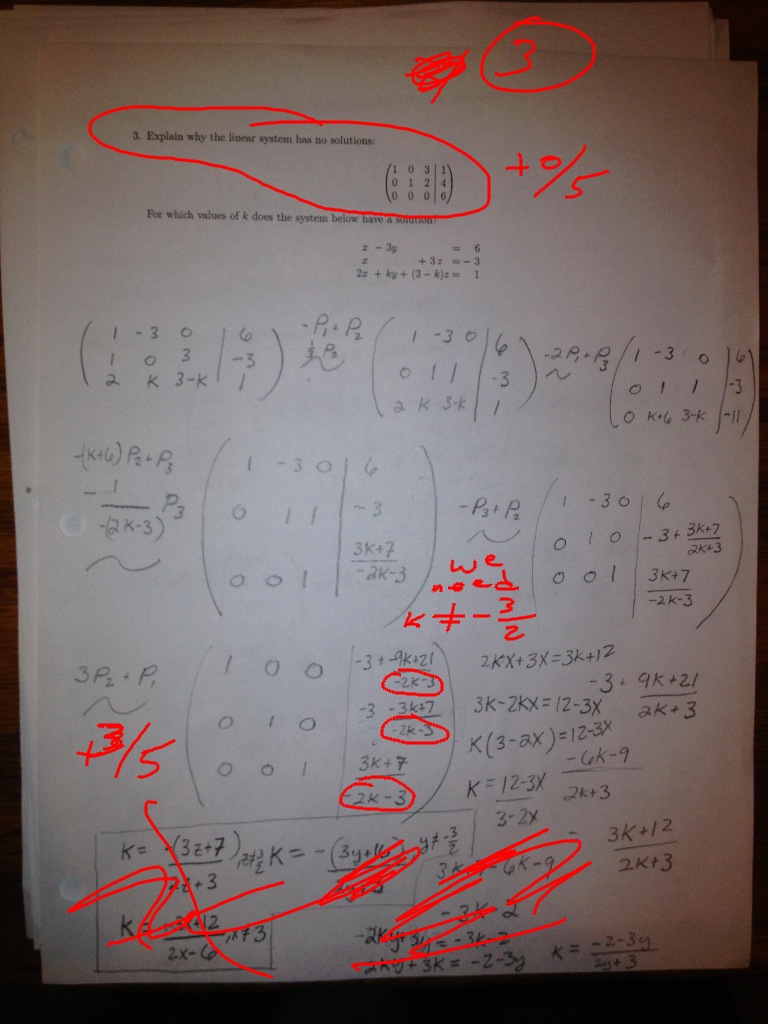 3
3. Explain why the linear system has no solutions:
1 0 3 | 1
0 1 2 | 4
0 0 0 | 6
+0/5
For which values of k does the system below have a solution?
x - 3y = 6
x + 3z = -3
2x + ky + (3 - k)z = 1
1 -3 0 | 6
1 0 3 | -3
2 K 3-K | 1
-P₁+P₂
⅓P₂
1 -3 0 | 6
0 1 1 | -3
2 K 3-K | 1
-2P₁+P₃
1 -3 0 | 6
0 1 1 | -3
0 K+6 3-K | -11
-(K+6)P₂+P₃
-1/-(2K-3) P₃
1 -3 0 | 6
0 1 1 | -3
0 0 1 | 3K+7/-2K-3
-P₃+P₂
1 -3 0 | 6
0 1 0 | -3+ 3K+7/2K+3
0 0 1 | 3K+7/-2K-3
we
need
K ≠ -3/2
3P₂+P₁
1 0 0 | -3+ -9K+21/-2K-3
0 1 0 | -3 -3K+7/-2K-3
0 0 1 | 3K+7/-2K-3
+3/5
2KX+3X=3K+12
3K-2KX=12-3X
K(3-2X)=12-3X
K= 12-3X/3-2X
-3+ 9K+21/2K+3
-6K-9/2K+3
- 3K+12/2K+3
K= -(3z+7)/2z+3
K= -3x+12/2x-6, x≠3
y≠-3/2
-3K-2
-2Ky+3y=-3K-2
2Ky+3K=-2-3y
K= -2-3y/2y+3